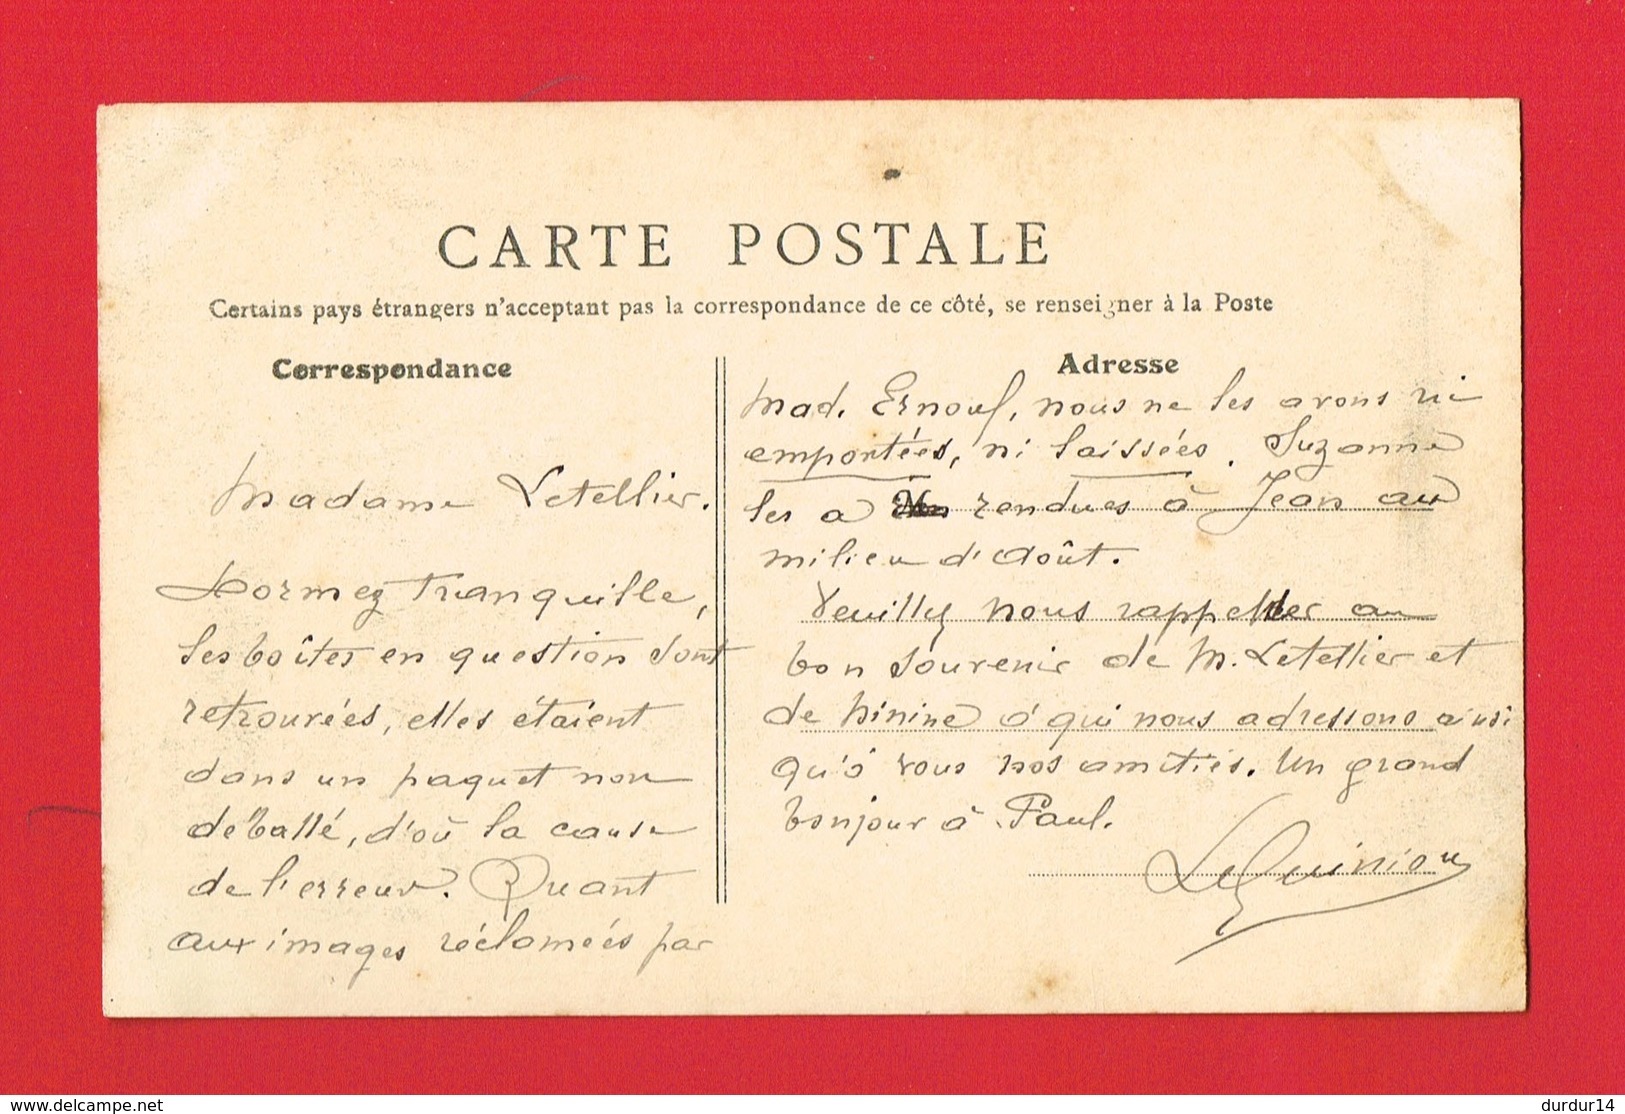 CARTE POSTALE
Certains pays étrangers n'acceptant pas la correspondance de ce côté, se renseigner à la Poste
Correspondance
Madame Letellier.
Dormez tranquille,
les boîtes en question sont
retrouvées, elles étaient
dans un paquet non
déballé, d'où la cause
de l'erreur. Quant
aux images réclamées par
Adresse
Mad. Ernouf, nous ne les avons ni
emportées, ni laissées. Suzanne
les a rendues à Jean au
milieu d'Août.
Veuillez nous rappeller au
bon souvenir de M. Letellier et
de Ninine à qui nous adressons ainsi
qu'à vous nos amitiés. Un grand
bonjour à Paul.
LeQuiniou
delcampe.net
durdur14